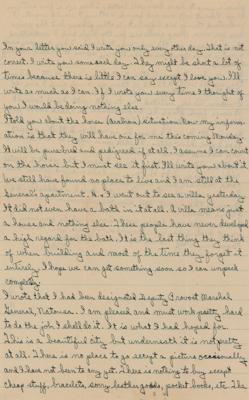 In your letter you said I write you only every other day. That is not
correct. I write you some each day. They might be short a lot of
times because there is little I can say except I love you. I'll
write as much as I can. If I write you every time I thought of
you I would be doing nothing else.
I told you about the horse (Arabian) situation. Now my inform-
ation is that they will have one for me this coming Monday.
It will be purebred and pedigreed if at all. I assume I can count
on the horse but I must see it first. I'll write you about it.
We still have found no place to live and I am still at the
General's apartment. I went out to see a villa yesterday.
It did not even have a bath in it at all. A villa means just
a house and nothing else. These people have never developed
a high regard for the bath. It is the last thing they think
of when building and most of the time they forget it
entirely. I hope we can get something soon so I can unpack
completely.
I wrote that I had been designated Deputy Provost Marshal
General, Natousa. I am pleased and must work pretty hard
to do the job I shall do it. It is what I had hoped for.
This is a beautiful city but underneath it is not pretty
at all. There is no place to go except a picture occasionally
and I have not been to any yet. There is nothing to buy except
cheap stuff, bracelets, sorry leather goods, pocket books, etc. The